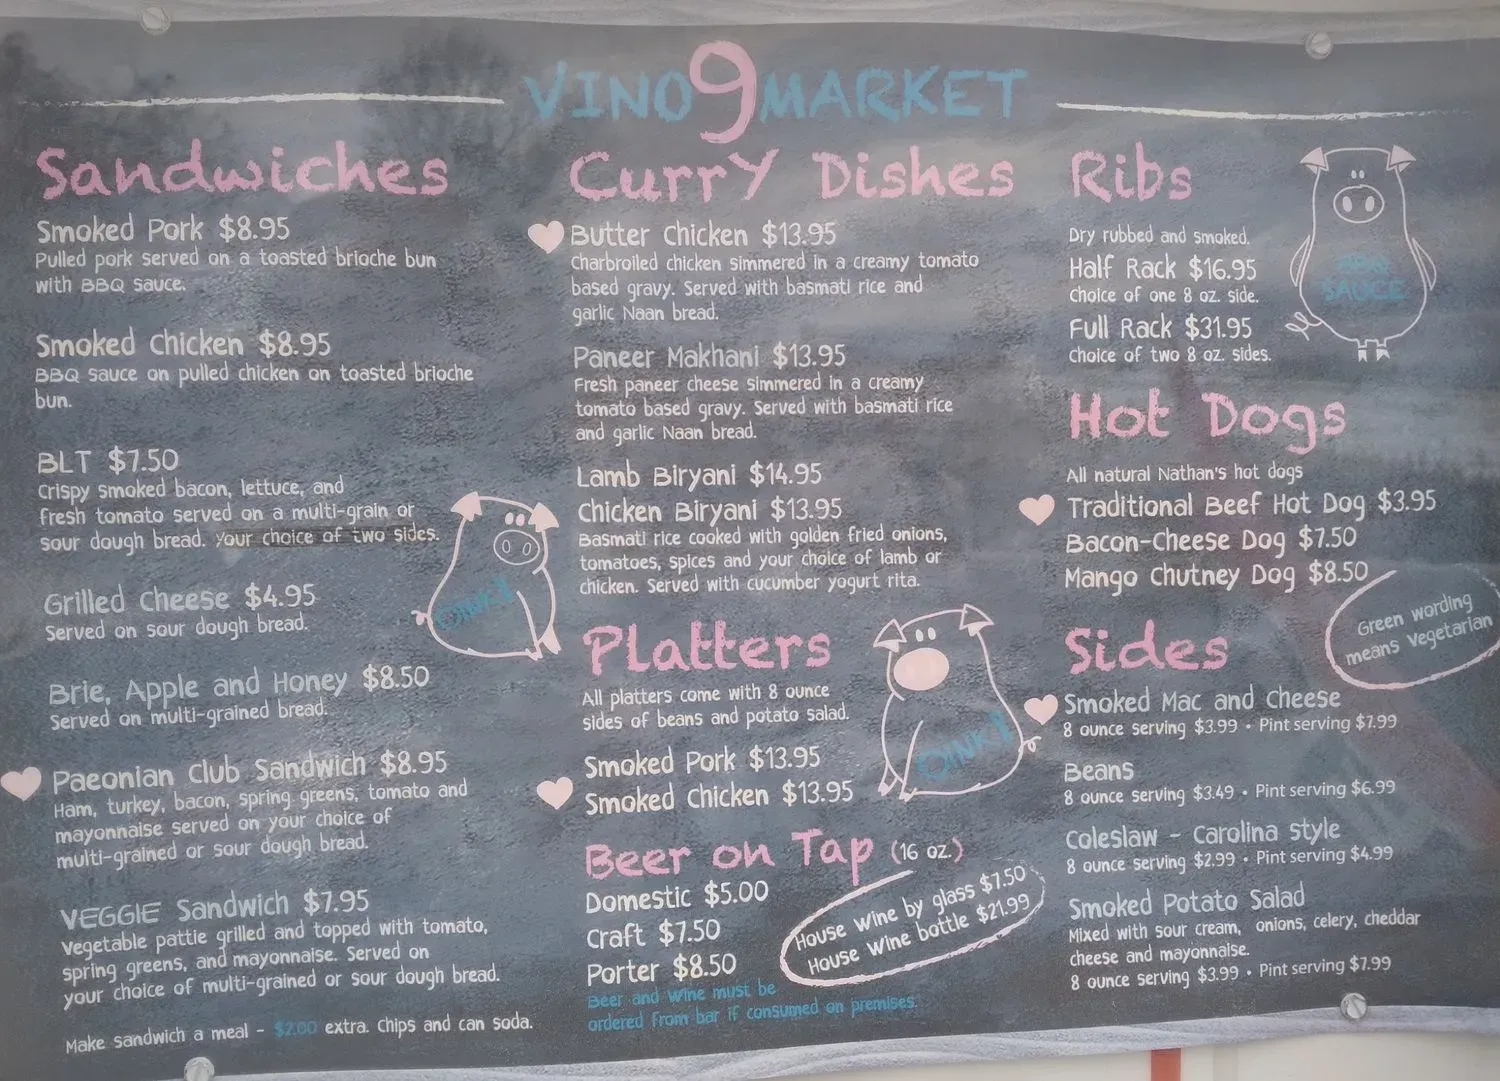 VINO 9 MARKET
Sandwiches
Smoked Pork $8.95
Pulled pork served on a toasted brioche bun
with BBQ sauce.
Smoked Chicken $8.95
BBQ sauce on pulled chicken on toasted brioche
bun.
BLT $7.50
Crispy smoked bacon, lettuce, and
fresh tomato served on a multi-grain or
sour dough bread. Your choice of two sides.
Grilled Cheese $4.95
Served on sour dough bread.
Brie, Apple and Honey $8.50
Served on multi-grained bread.
Paeonian Club Sandwich $8.95
Ham, turkey, bacon, spring greens, tomato and
mayonnaise served on your choice of
multi-grained or sour dough bread.
VEGGIE Sandwich $7.95
Vegetable pattie grilled and topped with tomato,
spring greens, and mayonnaise. Served on
your choice of multi-grained or sour dough bread.
Make sandwich a meal - $2.00 extra. Chips and can soda.
OINK!
Curry Dishes
Butter Chicken $13.95
Charbroiled chicken simmered in a creamy tomato
based gravy. Served with basmati rice and
garlic Naan bread.
Paneer Makhani $13.95
Fresh paneer cheese simmered in a creamy
tomato based gravy. Served with basmati rice
and garlic Naan bread.
Lamb Biryani $14.95
Chicken Biryani $13.95
Basmati rice cooked with golden fried onions,
tomatoes, spices and your choice of lamb or
chicken. Served with cucumber yogurt rita.
Platters
All platters come with 8 ounce
sides of beans and potato salad.
Smoked Pork $13.95
Smoked Chicken $13.95
OINK!
Beer on Tap (16 oz.)
Domestic $5.00
Craft $7.50
Porter $8.50
Beer and Wine must be
ordered from bar if consumed on premises.
House Wine by glass $7.50
House Wine bottle $21.99
Ribs
Dry rubbed and smoked.
Half Rack $16.95
Choice of one 8 oz. side.
Full Rack $31.95
Choice of two 8 oz. sides.
BBQ
SAUCE
Hot Dogs
All natural Nathan's hot dogs
Traditional Beef Hot Dog $3.95
Bacon-Cheese Dog $7.50
Mango Chutney Dog $8.50
Green wording
means Vegetarian
Sides
Smoked Mac and Cheese
8 ounce serving $3.99 • Pint serving $7.99
Beans
8 ounce serving $3.49 • Pint serving $6.99
Coleslaw - Carolina Style
8 ounce serving $2.99 • Pint serving $4.99
Smoked Potato Salad
Mixed with sour cream, onions, celery, cheddar
cheese and mayonnaise.
8 ounce serving $3.99 • Pint serving $7.99